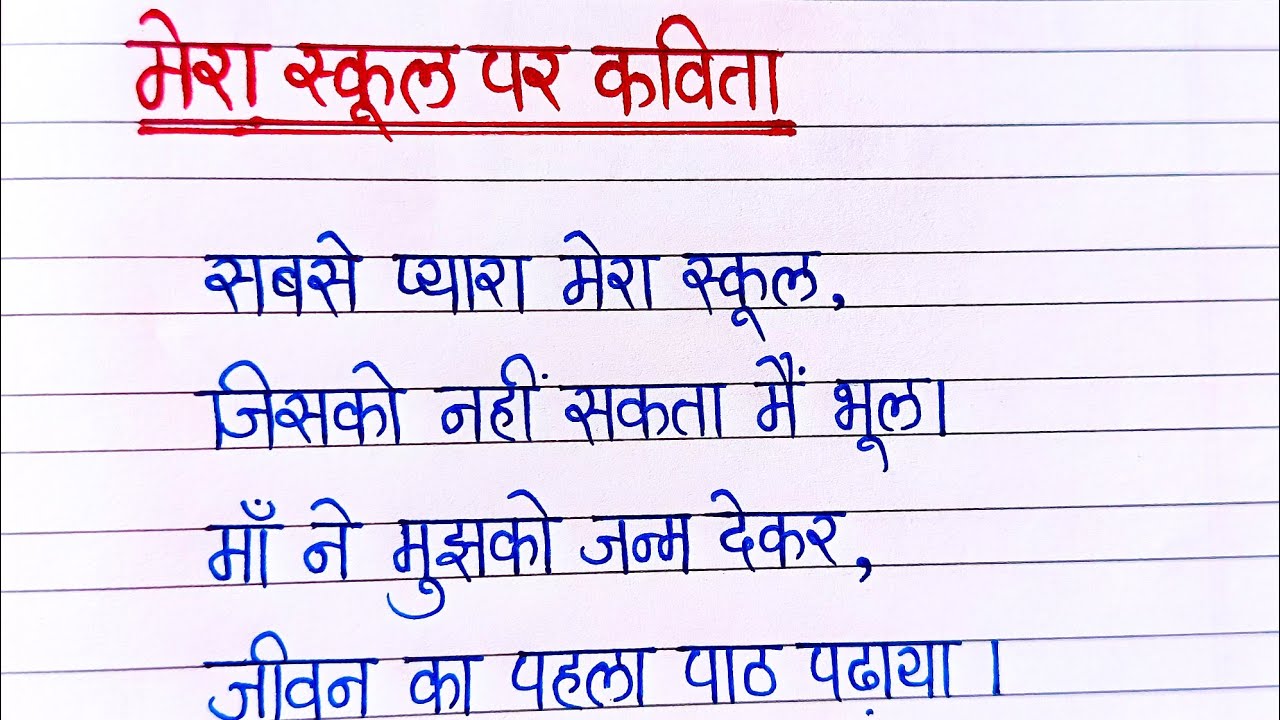 मेरा स्कूल पर कविता
सबसे प्यारा मेरा स्कूल,
जिसको नहीं सकता मैं भूल।
माँ ने मुझको जन्म देकर,
जीवन का पहला पाठ पढ़ाया।